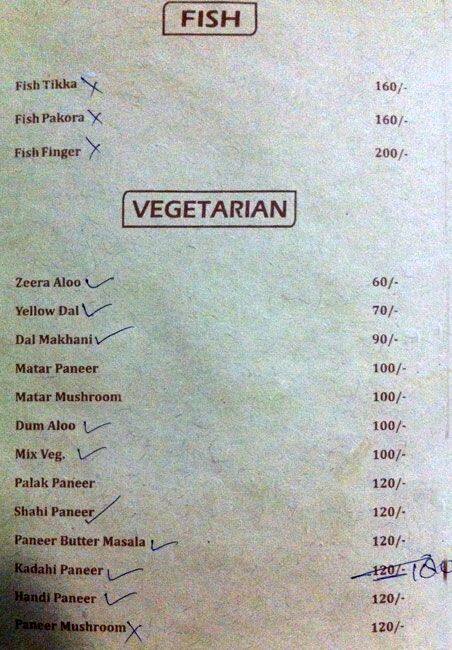 FISH
Fish Tikka 160/-
Fish Pakora 160/-
Fish Finger 200/-
VEGETARIAN
Zeera Aloo 60/-
Yellow Dal 70/-
Dal Makhani 90/-
Matar Paneer 100/-
Matar Mushroom 100/-
Dum Aloo 100/-
Mix Veg. 100/-
Palak Paneer 120/-
Shahi Paneer 120/-
Paneer Butter Masala 120/-
Kadahi Paneer 120/-
Handi Paneer 120/-
Paneer Mushroom 120/-